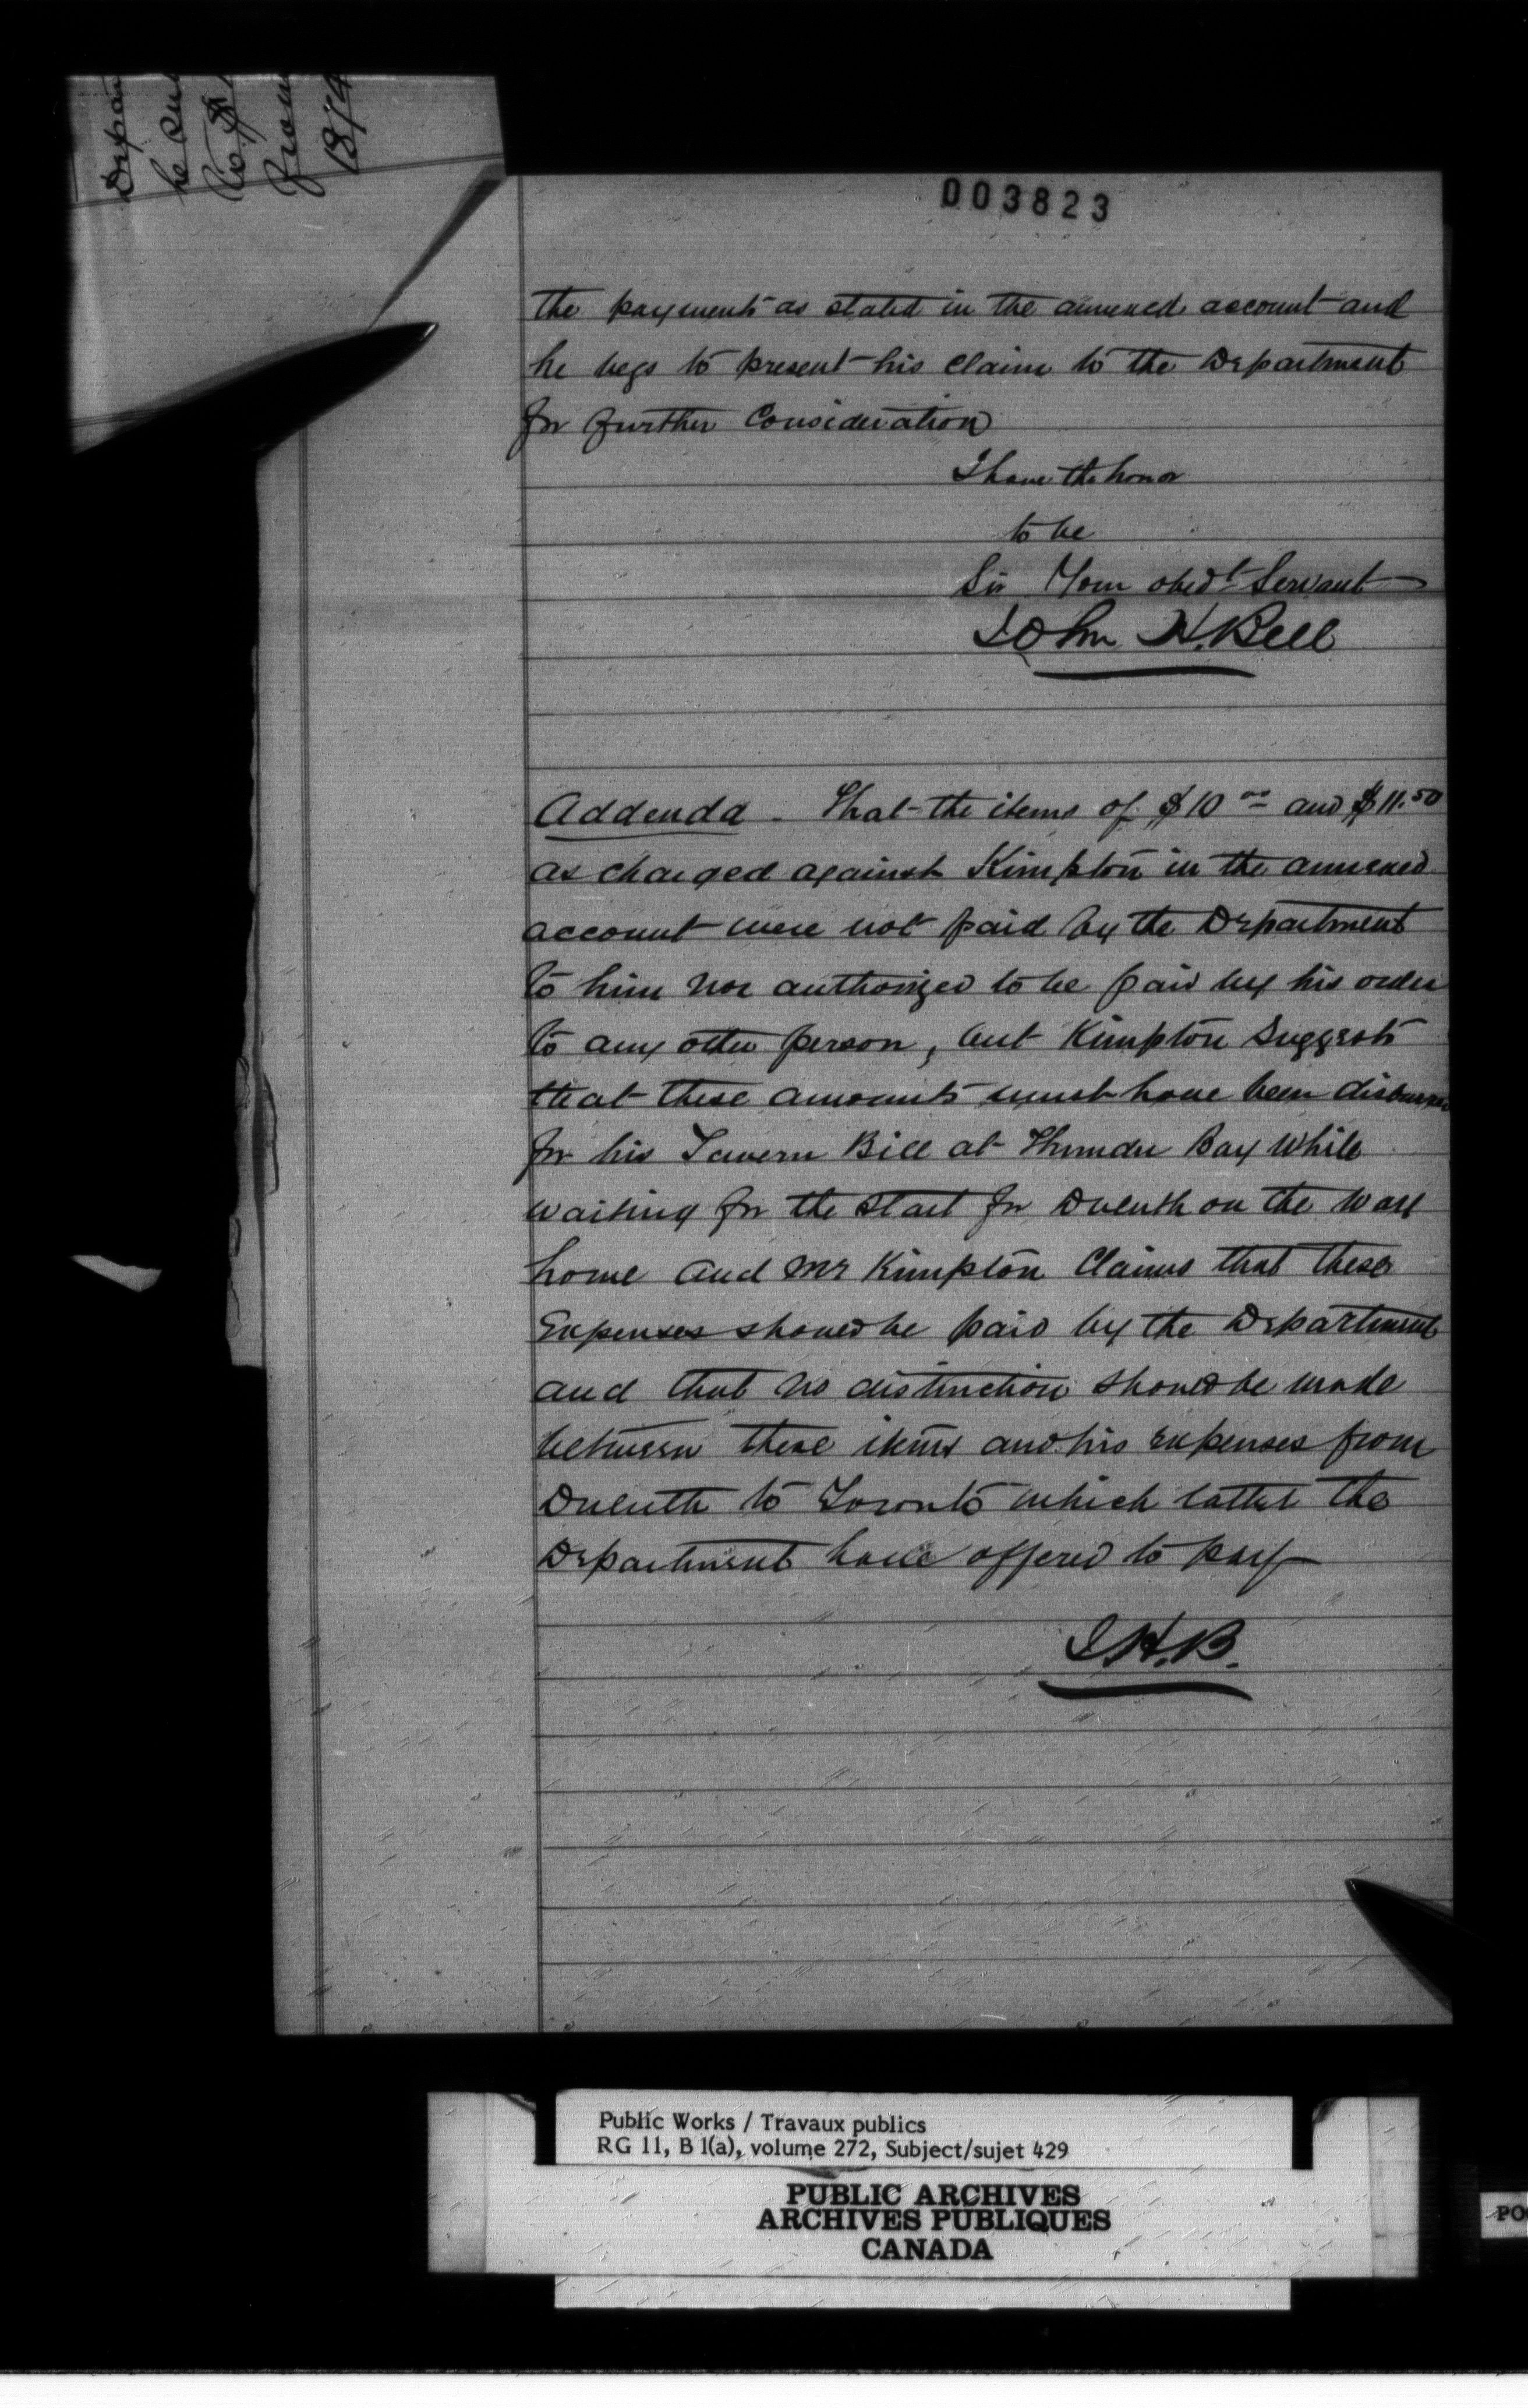 003823
the payments as stated in the annexed account and
he begs to present his claim to the Department
for further Consideration
I have the honor
to be
Sir Your obedt Servant
John H. Bell
Addenda - That the items of $10 00 and $11.50
as charged against Kimpton in the annexed
account were not paid by the Department
to him nor authorized to be paid by his order
to any other person, but Kimpton Suggests
that these amounts must have been disbursed
for his Tavern Bill at Thunder Bay while
waiting for the start for Duluth on the way
home and Mr Kimpton Claims that these
Expenses should be paid by the Department
and that no distinction should be made
between these items and his expenses from
Duluth to Toronto which latter the
Department have offered to pay
J.H.B.
Public Works / Travaux publics
RG 11, B 1(a), volume 272, Subject/sujet 429
PUBLIC ARCHIVES
ARCHIVES PUBLIQUES
CANADA